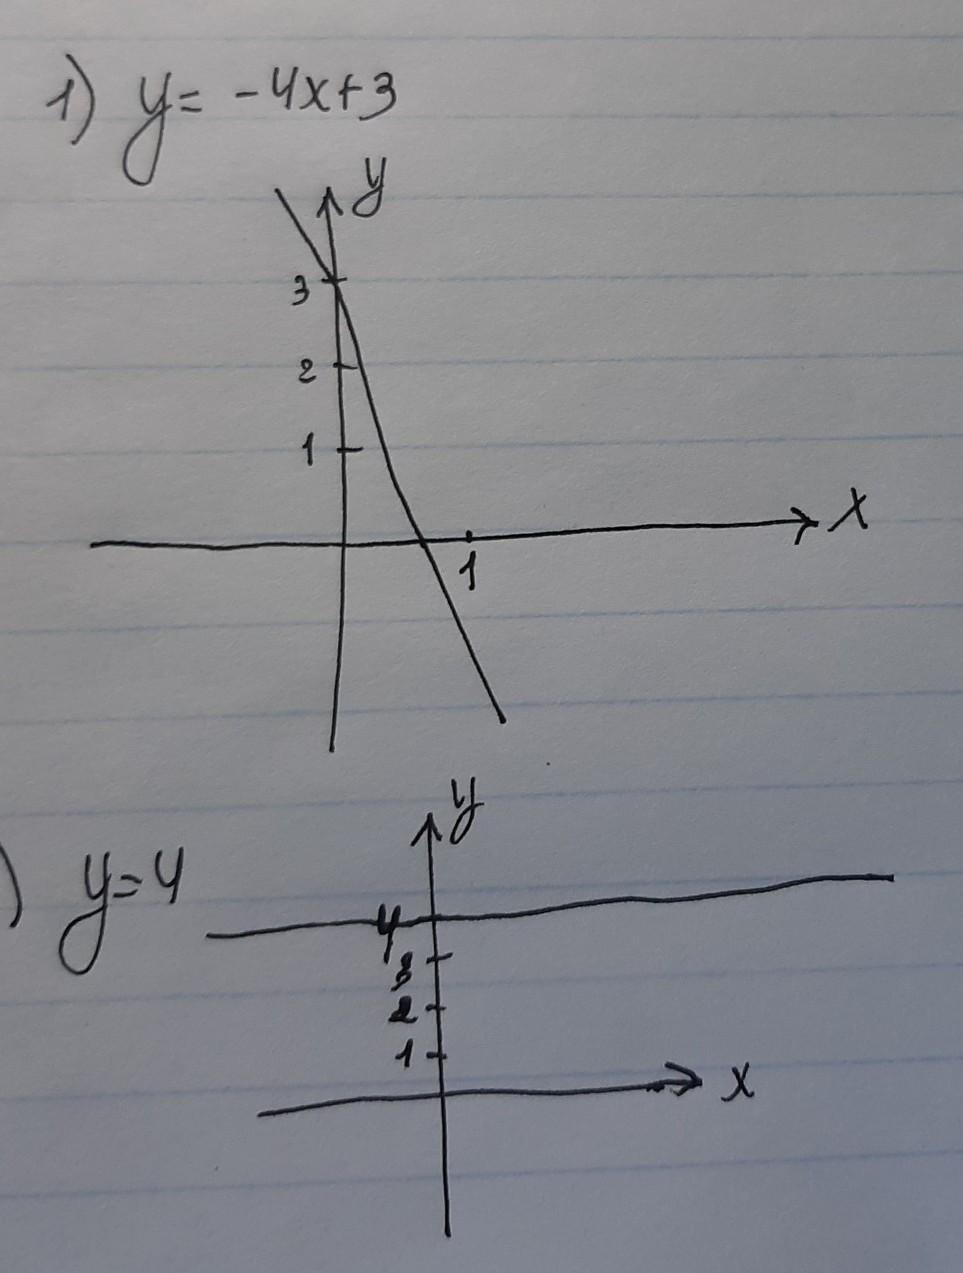 1) y = -4x+3
y
3
2
1
x
1
y
) y=4
4
3
2
1
x